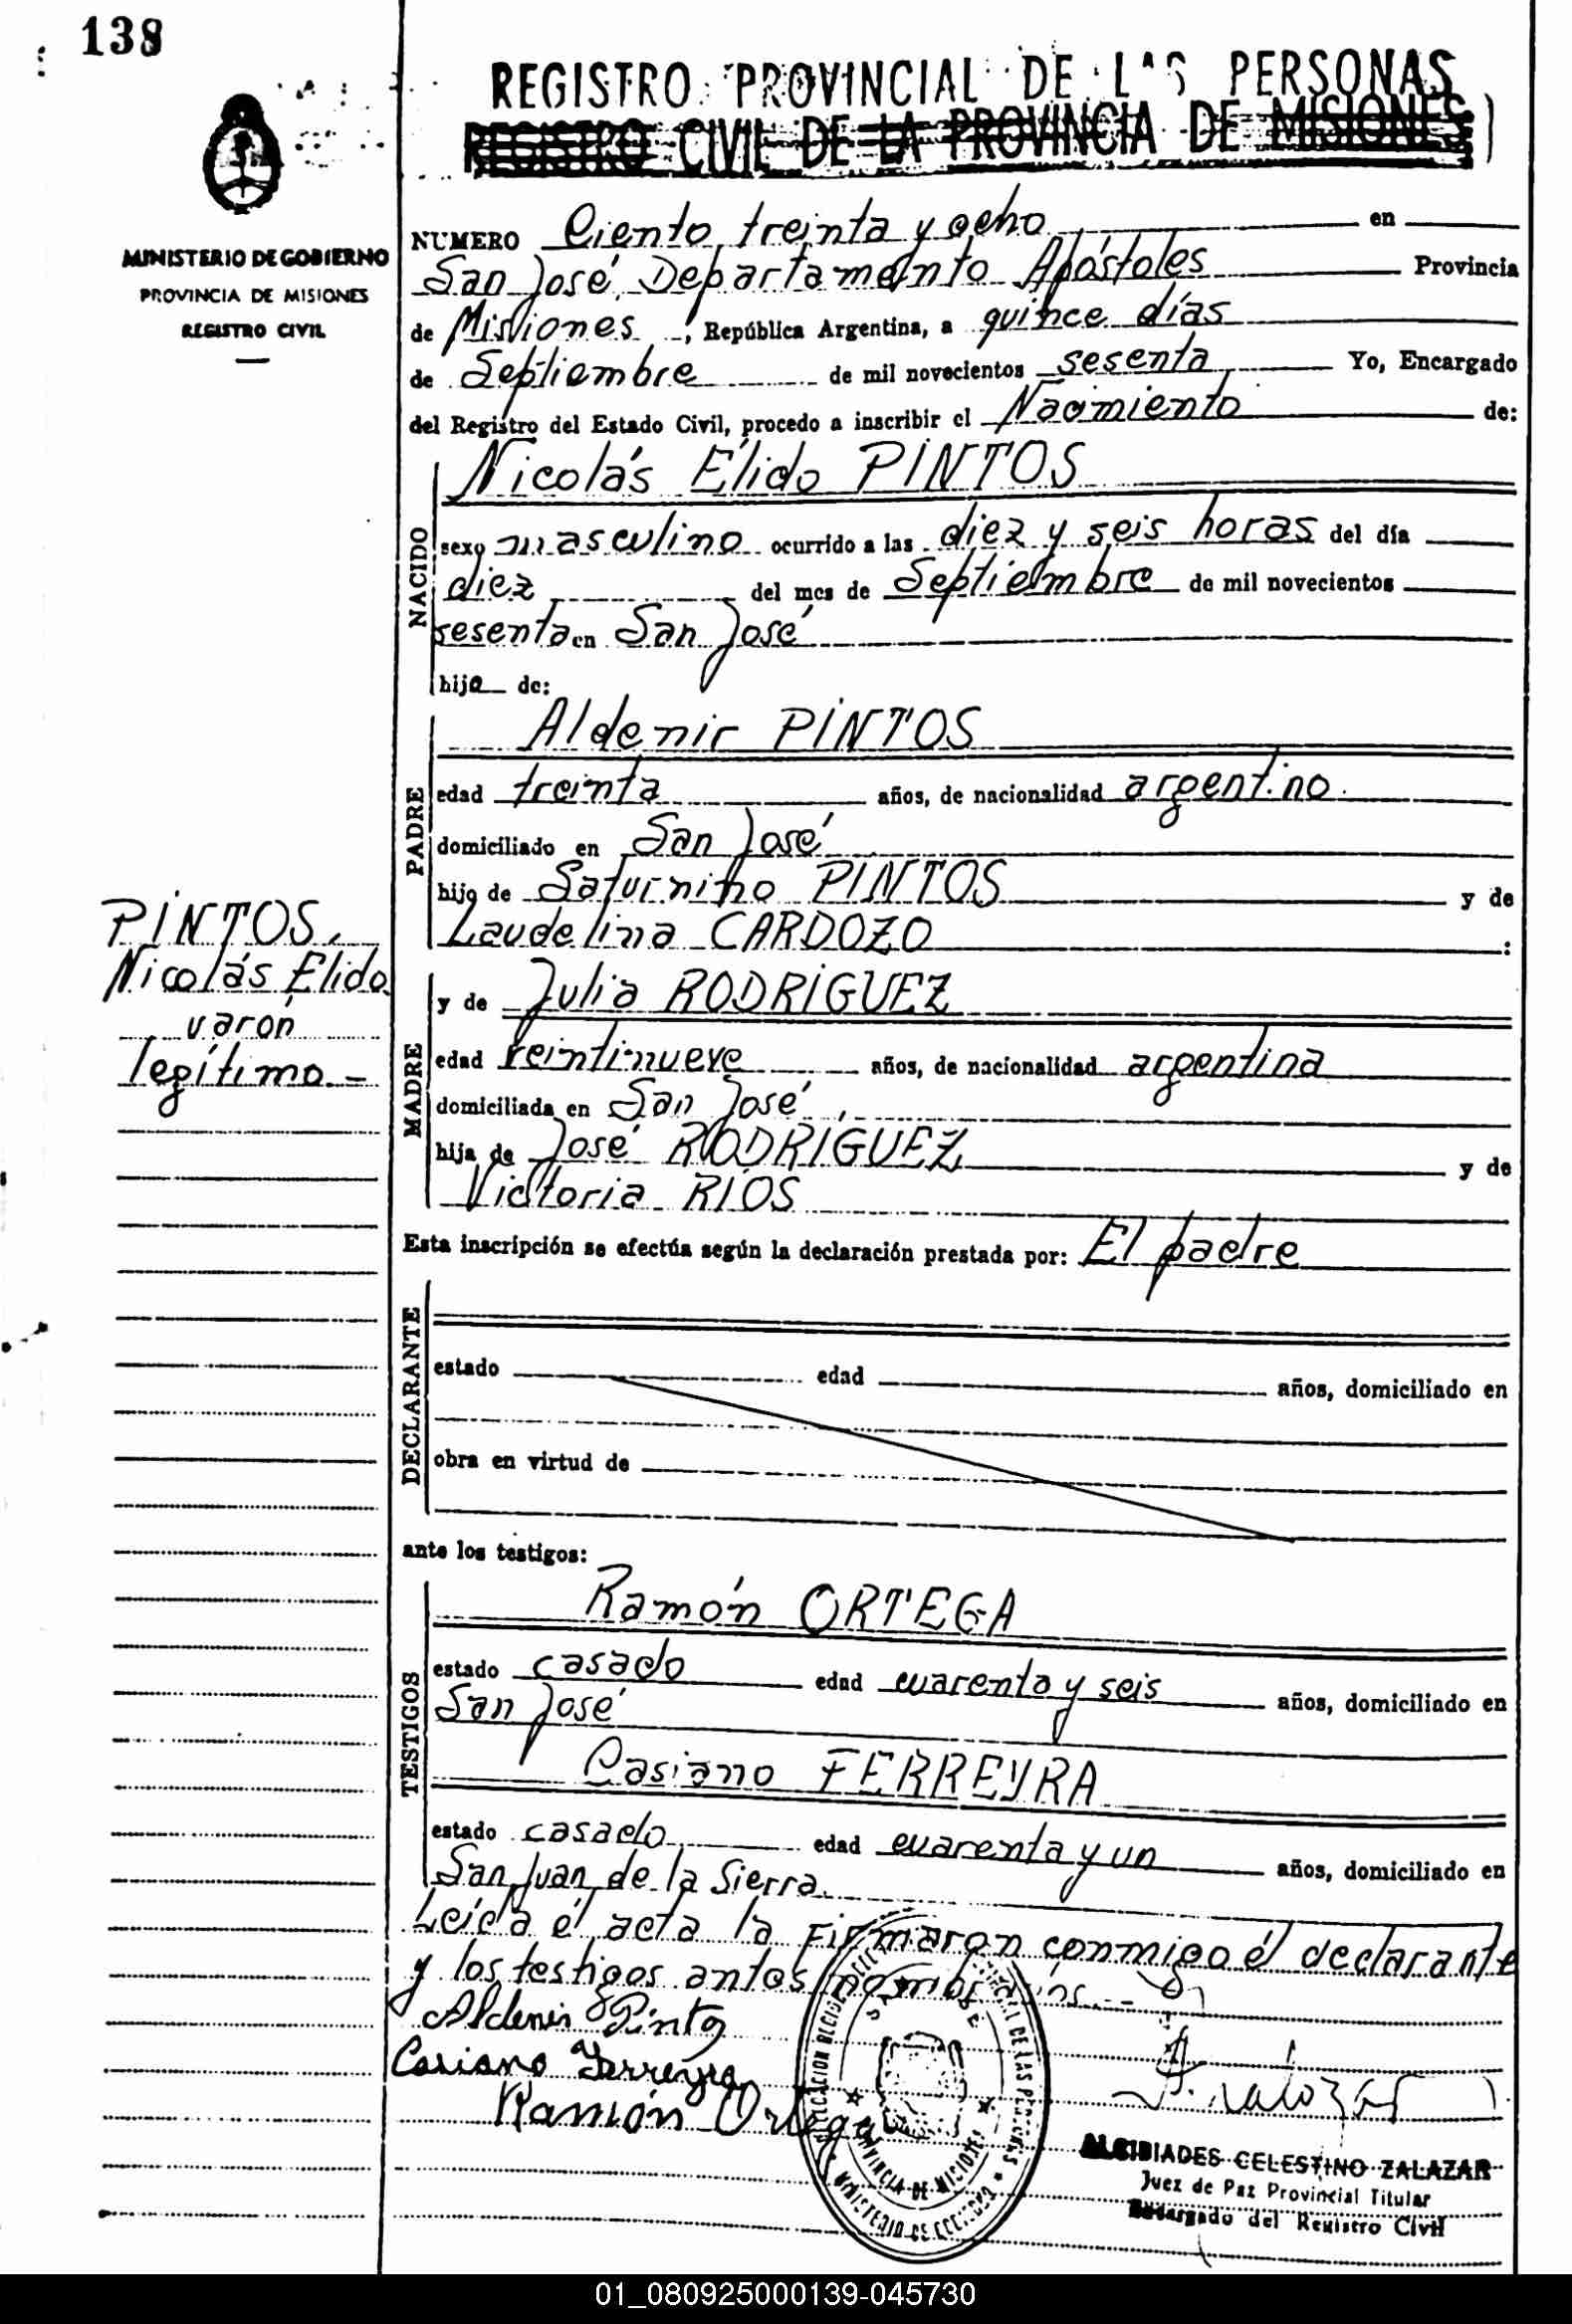 138
REGISTRO PROVINCIAL DE LAS PERSONAS
REGISTRO CIVIL DE LA PROVINCIA DE MISIONES
MINISTERIO DE GOBIERNO
PROVINCIA DE MISIONES
REGISTRO CIVIL
NUMERO Ciento treinta y ocho en
San José, Departamento Apóstoles Provincia
de Misiones, República Argentina, a quince días
de Septiembre de mil novecientos sesenta Yo, Encargado
del Registro del Estado Civil, procedo a inscribir el Nacimiento de:
NACIDO
Nicolás Élido PINTOS
sexo masculino ocurrido a las diez y seis horas del día
diez del mes de Septiembre de mil novecientos
sesenta en San José
hijo de:
PADRE
Aldenir PINTOS
edad treinta años, de nacionalidad argentino.
domiciliado en San José
hijo de Saturnino PINTOS y de
Laudelina CARDOZO :
PINTOS,
Nicolás Elido
varón
legítimo.-
MADRE
y de Julia RODRIGUEZ
edad veintinueve años, de nacionalidad argentina
domiciliada en San José,
hija de José RODRIGUEZ y de
Victoria RIOS
Esta inscripción se efectúa según la declaración prestada por: El padre
DECLARANTE
estado edad años, domiciliado en
obra en virtud de
ante los testigos:
TESTIGOS
Ramón ORTEGA
estado casado edad cuarenta y seis años, domiciliado en
San José
Casiano FERREYRA
estado casado edad cuarenta y un años, domiciliado en
San Juan de la Sierra.
Leída él acta la Firmaron conmigo él declarante
y los testigos antes
Aldenir Pinto
Casiano Ferreyra
Ramón Ortega
PROVINCIA DE MISIONES
MINISTERIO DE
ALCIBIADES CELESTINO ZALAZAR
Juez de Paz Provincial Titular
Encargado del Registro Civil
01_080925000139-045730